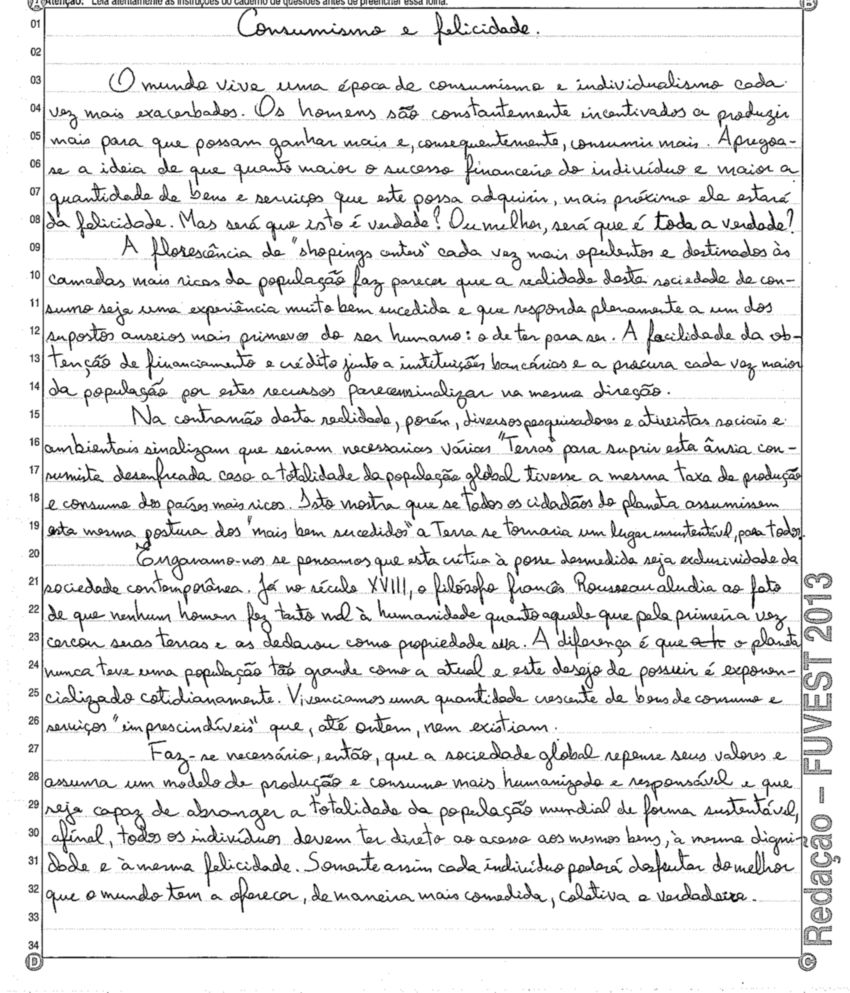 Atenção: Leia atentamente as instruções do caderno de questões antes de preencher essa folha.
A
B
01 Consumismo e felicidade.
02
03 O mundo vive uma época de consumismo e individualismo cada
04 vez mais exacerbados. Os homens são constantemente incentivados a produzir
05 mais para que possam ganhar mais e, consequentemente, consumir mais. Apregoa-
06 se a ideia de que quanto maior o sucesso financeiro do indivíduo e maior a
07 quantidade de bens e serviços que este possa adquirir, mais próximo ele estará
08 da felicidade. Mas será que isto é verdade? Ou melhor, será que é toda a verdade?
09 A florescência de "shopings centers" cada vez mais opulentos e destinados às
10 camadas mais ricas da população faz parecer que a realidade desta sociedade de con-
11 sumo seja uma experiência muito bem sucedida e que responda plenamente a um dos
12 supostos anseios mais primevos do ser humano: o de ter para ser. A facilidade da ob-
13 tenção de financiamento e crédito junto a instituições bancárias e a procura cada vez maior
14 da população por estes recursos parecem sinalizar na mesma direção.
15 Na contramão desta realidade, porém, diversos pesquisadores e ativistas sociais e
16 ambientais sinalizam que seriam necessarias várias "Terras" para suprir esta ânsia con-
17 sumista desenfreada caso a totalidade da população global tivesse a mesma taxa de produção
18 e consumo dos países mais ricos. Isto mostra que se todos os cidadãos do planeta assumissem
19 esta mesma postura dos "mais bem sucedidos" a Terra se tornaria um lugar insustentável, para todos.
20 Enganamo-nos se pensamos que esta crítica à posse desmedida seja exclusividade da
21 sociedade contemporânea. Já no século XVIII, o filósofo francês Rousseau aludia ao fato
22 de que nenhum homem fez tanto mal à humanidade quanto aquele que pela primeira vez
23 cercou suas terras e as declarou como propriedade sua. A diferença é que o planeta
24 nunca teve uma população tão grande como a atual e este desejo de possuir é exponen-
25 cializado cotidianamente. Vivenciamos uma quantidade crescente de bens de consumo e
26 serviços "imprescindíveis" que, até ontem, nem existiam.
27 Faz-se necessário, então, que a sociedade global repense seus valores e
28 assuma um modelo de produção e consumo mais humanizado e responsável e que
29 seja capaz de abranger a totalidade da população mundial de forma sustentável,
30 afinal, todos os indivíduos devem ter direto ao acesso aos mesmos bens, à mesma digni-
31 dade e à mesma felicidade. Somente assim cada indivíduo poderá desfrutar do melhor
32 que o mundo tem a oferecer, de maneira mais comedida, coletiva e verdadeira.
33
34
D
C
Redação – FUVEST 2013